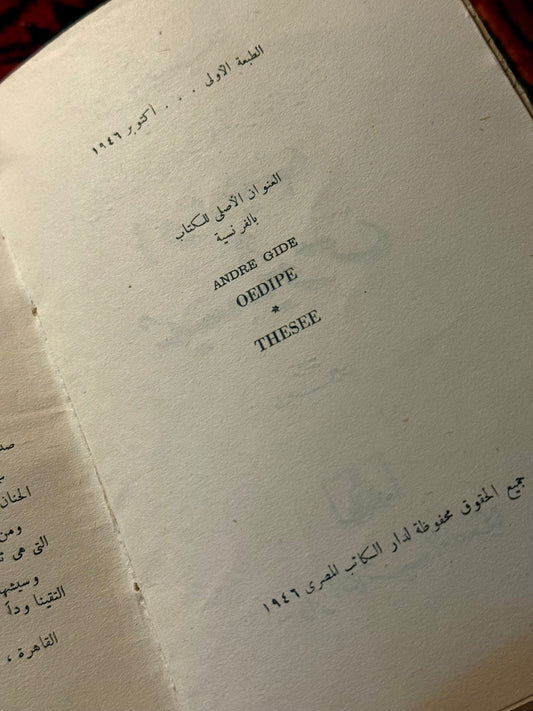 الطبعة الأولى . . . أكتوبر ١٩٤٦
العنوان الأصلى للكتاب
بالفرنسية
ANDRE GIDE
OEDIPE
*
THESEE
جميع الحقوق محفوظة لدار الكاتب المصرى ١٩٤٦
الحنان
ومن
التى هى
التقينا وداً
القاهرة ،